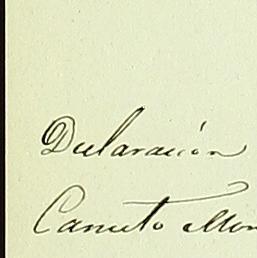 Declaracion
Canuto Mon